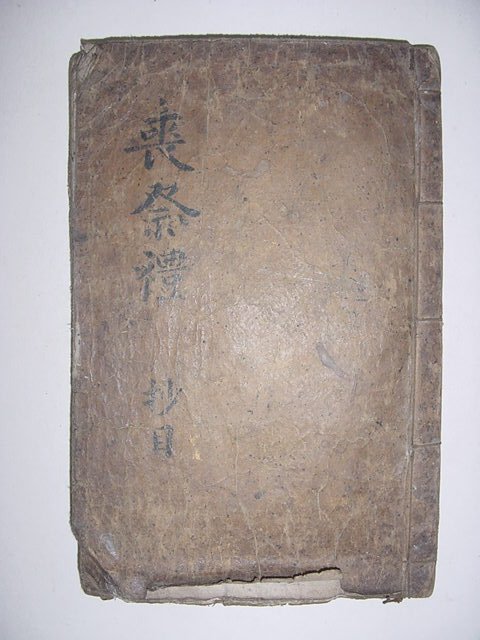 喪祭禮 抄目